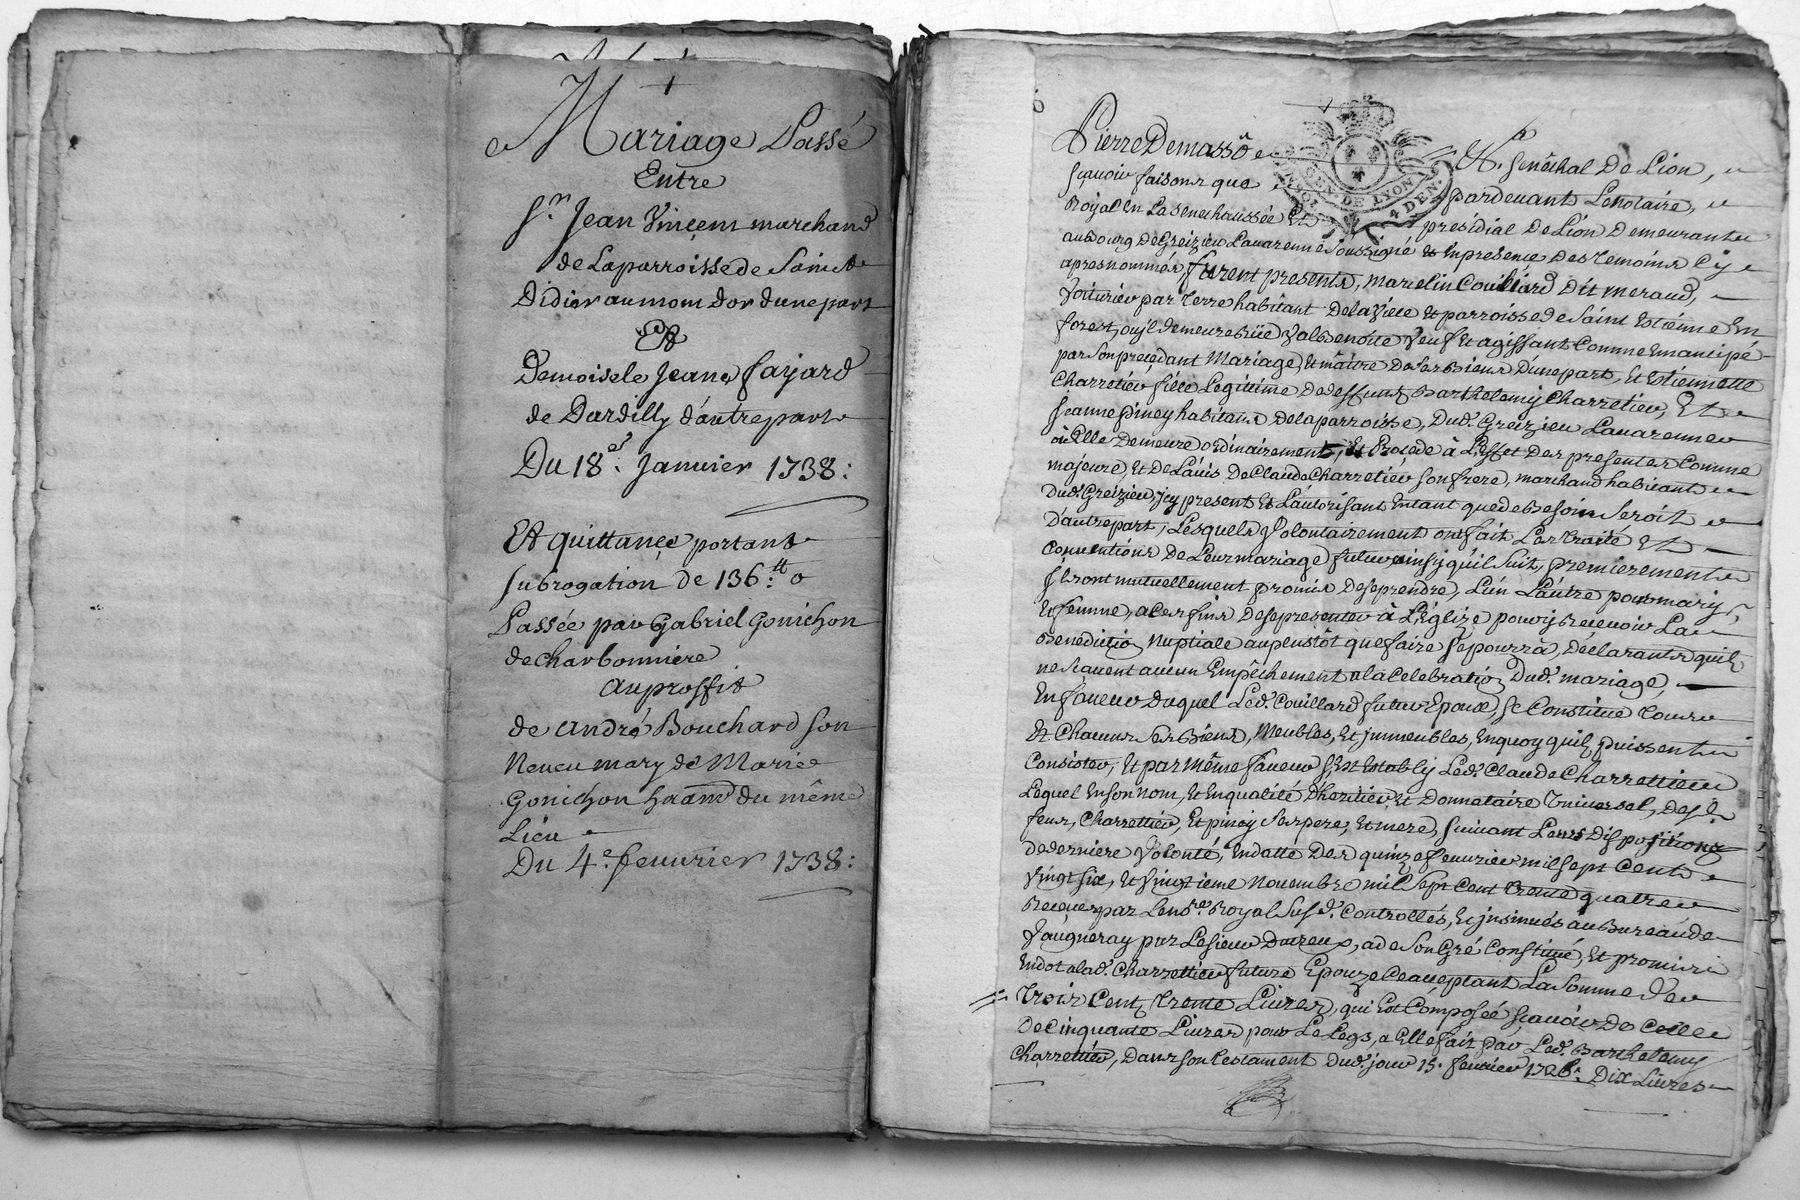 Mariage Passé
Entre
Sr. Jean Vinçent marchand
de Laparroisse de Saint
Didier au mont dor dune part
Et
Demoiselle Jeane fayard
de Dardilly d'autre part
Du 18e. Janvier 1738:
Et quittançe portant
subrogation de 136:tt 0
Passée par Gabriel Gonichon
de charbonniere
au proffit
de andré Bouchard son
Neveu mary de Marie
Gonichon du même
Lieu
Du 4e. feuurier 1738:
Pierre Demassô
Sr. Senéchal De Lion,
GEN. DE LYON
4 DEN.
sçauoir faisons que
pardeuant Lenotaire,
Royal En La Senechaussée Et
présidial De Lion Demeurant
au bourg De Greizieu Lauarenne Soussigné & En presence Des temoins Cy
apres nommés furent presents, Marcelin Couillard Dit meraud,
Voiturier par Terre habitant De la Ville Et parroisse de Saint Estienne En
forest, ou jl demeure Rüe Valbenoite Veuf Et agissant Comme Emancipé
par Son preçedant Mariage, Et maître De Ses Biens D'une part, Et Estiennette
Charretier fille Legitime De deffunt Barthelemy Charretier, Et
Jeanne Piney habitans De la parroisse, Dud. Greizieu Lauarenne
où Elle Demeure ordinairement, Et Procede à L'effet Des presentes Comme
majeure, Et De L'auis De Claude Charretier son frere, marchand habitant
Dud. Greizieu, jcy present Et L'autorisant Entant que de Besoin Seroit
D'autre part, Lesquels Volontairement ont fait Les Traité Et
Conuentions De Leur mariage futur ainsy qu'il Suit, premierement
Se sont mutuellement promis De se prendre, L'un L'autre pour mary,
Et femme, a Ces fins De se presenter à L'Eglize pour y Receuoir La
Benediction Nuptiale au plustôt que faire Se pourra, Déclarants quils
ne scauent aucun Empêchement a la Celebration Dud. mariage,
En faueur Duquel Led. Couillard futur Epoux, Se Constitue tous
Et Chacuns Ses Biens, Meubles, Et Jmmeubles, En quoy quils puissent
Consister, Et par même faueur S'Est Establÿ Led. Claude Charrettier
Lequel En son nom, Et En qualité D'heritier, Et Donnataire Vniversel, Desd.
feus, Charrettier, Et piney Ses pere, Et mere, suiuant Leurs Dispositions
De derniere Volonté, En datte Des quinze feuurier mil Sept Cent
Vingt Six, Et Vingtieme Nouembre mil Sept Cent Trente quatre
Reçues par Led. Nre. Royal Susd. Controllés, Et jnsinués au Bureau de
Vaugneray par Le Sieur Dutreux, a de Son Gré Constitué, Et promis
En dot a lad. Charrettier future Epouze Ceacceptant La Somme De
Trois Cent Trente Liures, qui Est Composée sçauoir De Celle
De Cinquante Liures pour Le Legs, a Elle fait par Led. Barthelemy
Charretier, Dans son testament Dud. jour 15. feurier 1726: Dix Liures